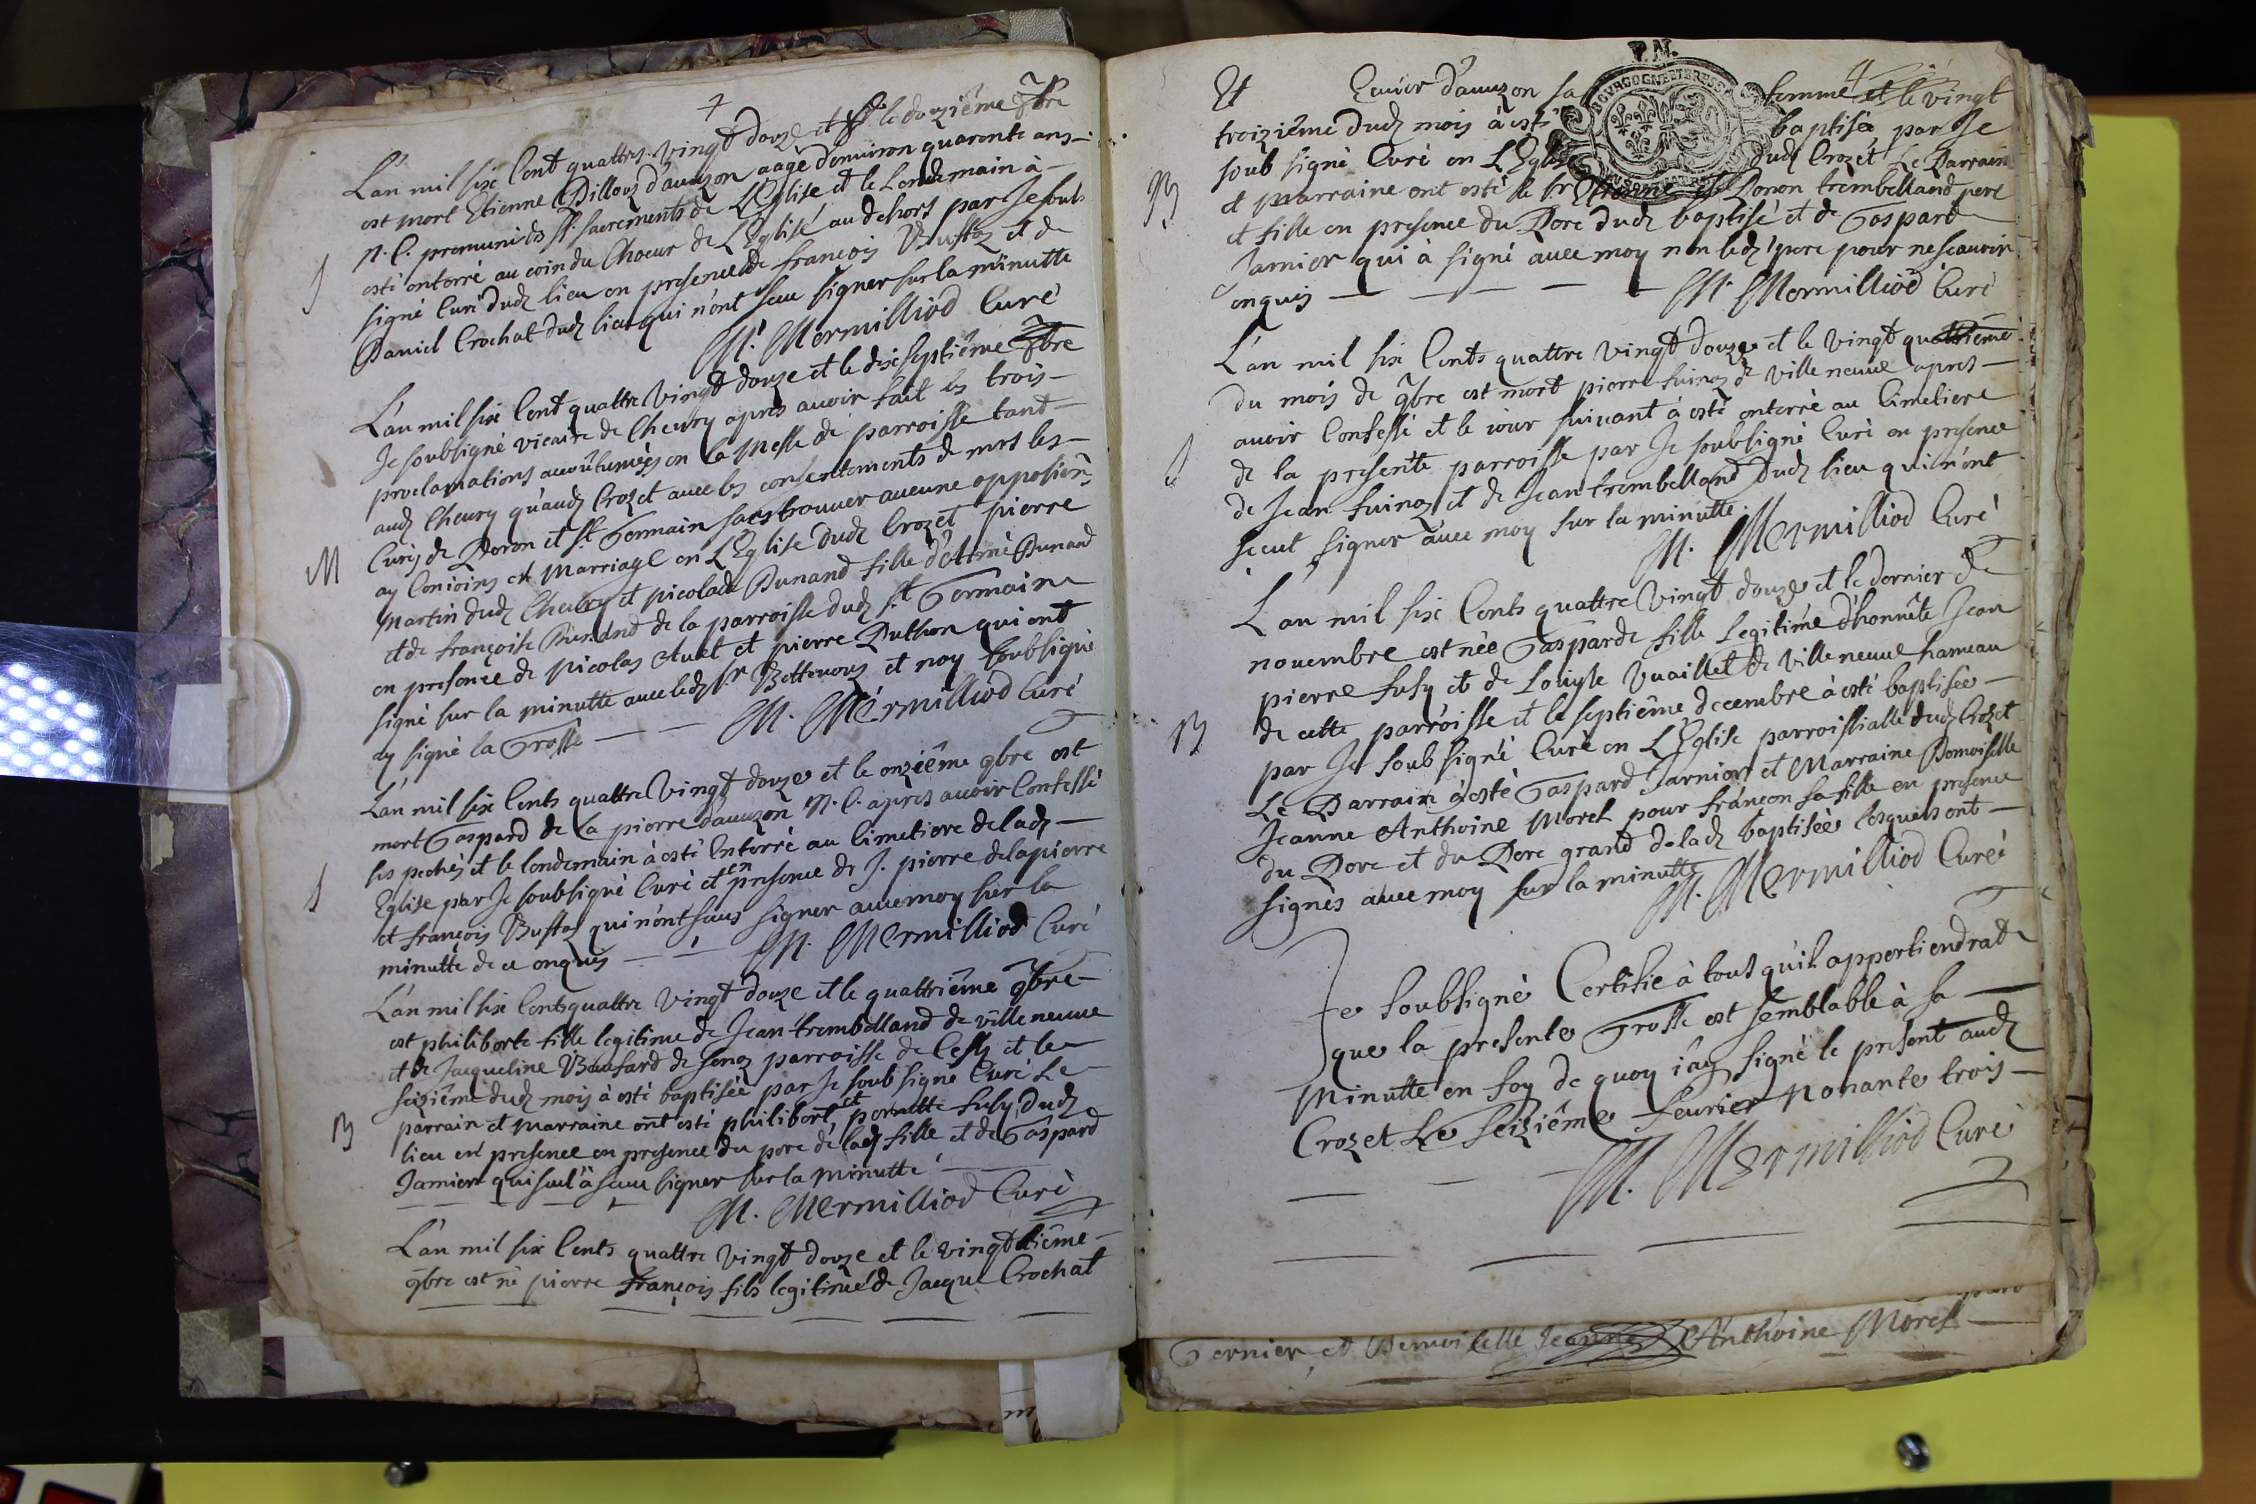 L'an mil six Cent quattre vingt douze et le douzième 7bre
est mort Etienne Dillouz d'auuzon aage d'enuiron quarante ans
N. C. premuni des Sts sacrements de L'Eglise et le Lendemain à
esté enterré au coin du Choeur de L'Eglise au dehors par Je soub
signé Curé dudt lieu en presence de francois Bustoz et de
Daniel Crochat dudt lieu qui n'ont seu signer sur la minutte
M. Mermilliod Curé
S
L'an mil six Cent quattre vingt douze et le dixseptième 7bre
Je soubsigné vicaire de Cheury apres auoir fait les trois
proclamations accoutumées en la Messe de parroisse tant
audt Cheury qu'audt Crozet auec les consentements de mrs les
Curés de Peron et St Germain sans trouuer aucune opposion
ay Conioins en Marriage en L'Eglise dudt Crozet pierre
Martin dudt Cheury et Nicolade Dunand fille d'Aimé Dunand
et de françoise Durand de la parroisse dudt St Germain
en presence de Nicolas Auet et pierre Duthon qui ont
signé sur la minutte auec ledt Sr Bettenous et moy soubsigné
ay signé la Grosse
M. Mermilliod Curé
M
L'an mil six Cents quattre vingt douze et le onzième 9bre est
mort Gaspard de la pierre d'auuzon N. C. apres auoir Confessé
ses pechés et le lendemain à esté Enterré au Cimetiere de ladt
Eglise par Je soubsigné Curé et en presence de J. pierre delapierre
et françois Bustoz qui n'ont seus signer auec moy sur la
minutte de ce enquis
M. Mermilliod Curé
S
L'an mil six Cents quattre vingt douze et le quattrième 9bre
est philiberte fille legitime de Jean trembelland de villeneuue
et de Jacqueline Baufard de Senoz parroisse de Cessy et le
seizième dudt mois à esté baptisée par Je soub signé Curé Le
parrain et marraine ont esté philibert et pernette fusy dudt
lieu en presence en presence du pere de ladt fille et de Gaspard
Jarnier qui seul à seau signer sur la minutte
M. Mermilliod Curé
B
L'an mil six Cents quattre vingt douze et le vingttième
9bre est né pierre françois fils legitime de Jacque Crochat
4
Et Cuuier d'auuzon sa femme et le vingt
troizième dudt mois à esté baptisée par Je
soub signé Curé en L'Eglise dudt Crozet Le Parrain
et Marraine ont esté le Sr Etienne et Ponon trembelland pere
et fille en presence du Pere dudt baptisé et de Gaspard
Jarnier qui à signé auec moy non ledt pere pour ne scauoir
enquis
M. Mermilliod Curé
B
P.N.
BOVRGOGNE ET BRESSE
L'an mil six Cents quattre vingt douze et le vingt quattrième
du mois de 9bre est mort pierre suinoz de villeneuue apres
auoir Confessé et le iour suiuant à esté enterré au Cimetiere
de la presente parroisse par Je soubsigné Curé en presence
de Jean suinoz et de Jean trembelland dudt lieu qui n'ont
sceut signer auec moy sur la minutte
M. Mermilliod Curé
S
L'an mil six Cents quattre vingt douze et le dernier de
nouembre est née Gasparde fille Legitime d'honnête Jean
pierre fusy et de Louyse Vuaillet de villeneuue hameau
de cette parroisse et le septième decembre à esté baptisée
par Je soub signé Curé en L'Eglise parroissialle dudt Crozet
Le Parrain à esté Gaspard Jarnier et Marraine Domoiselle
Jeanne Anthoine Morel pour francon sa fille en presence
du Pere et du Pere grand de ladt baptisée lesquels ont
signés auec moy sur la minutte
M. Mermilliod Curé
B
Je soubsigné Certifie à tous qu'il appertiendrat
que la presente Grosse est semblable à sa
Minutte en foy de quoy i'ay signé le present audt
Crozet Le seizième feurier Nonante trois
M. Mermilliod Curé
Gernier et Demoiselle Jeanne Anthoine Morel